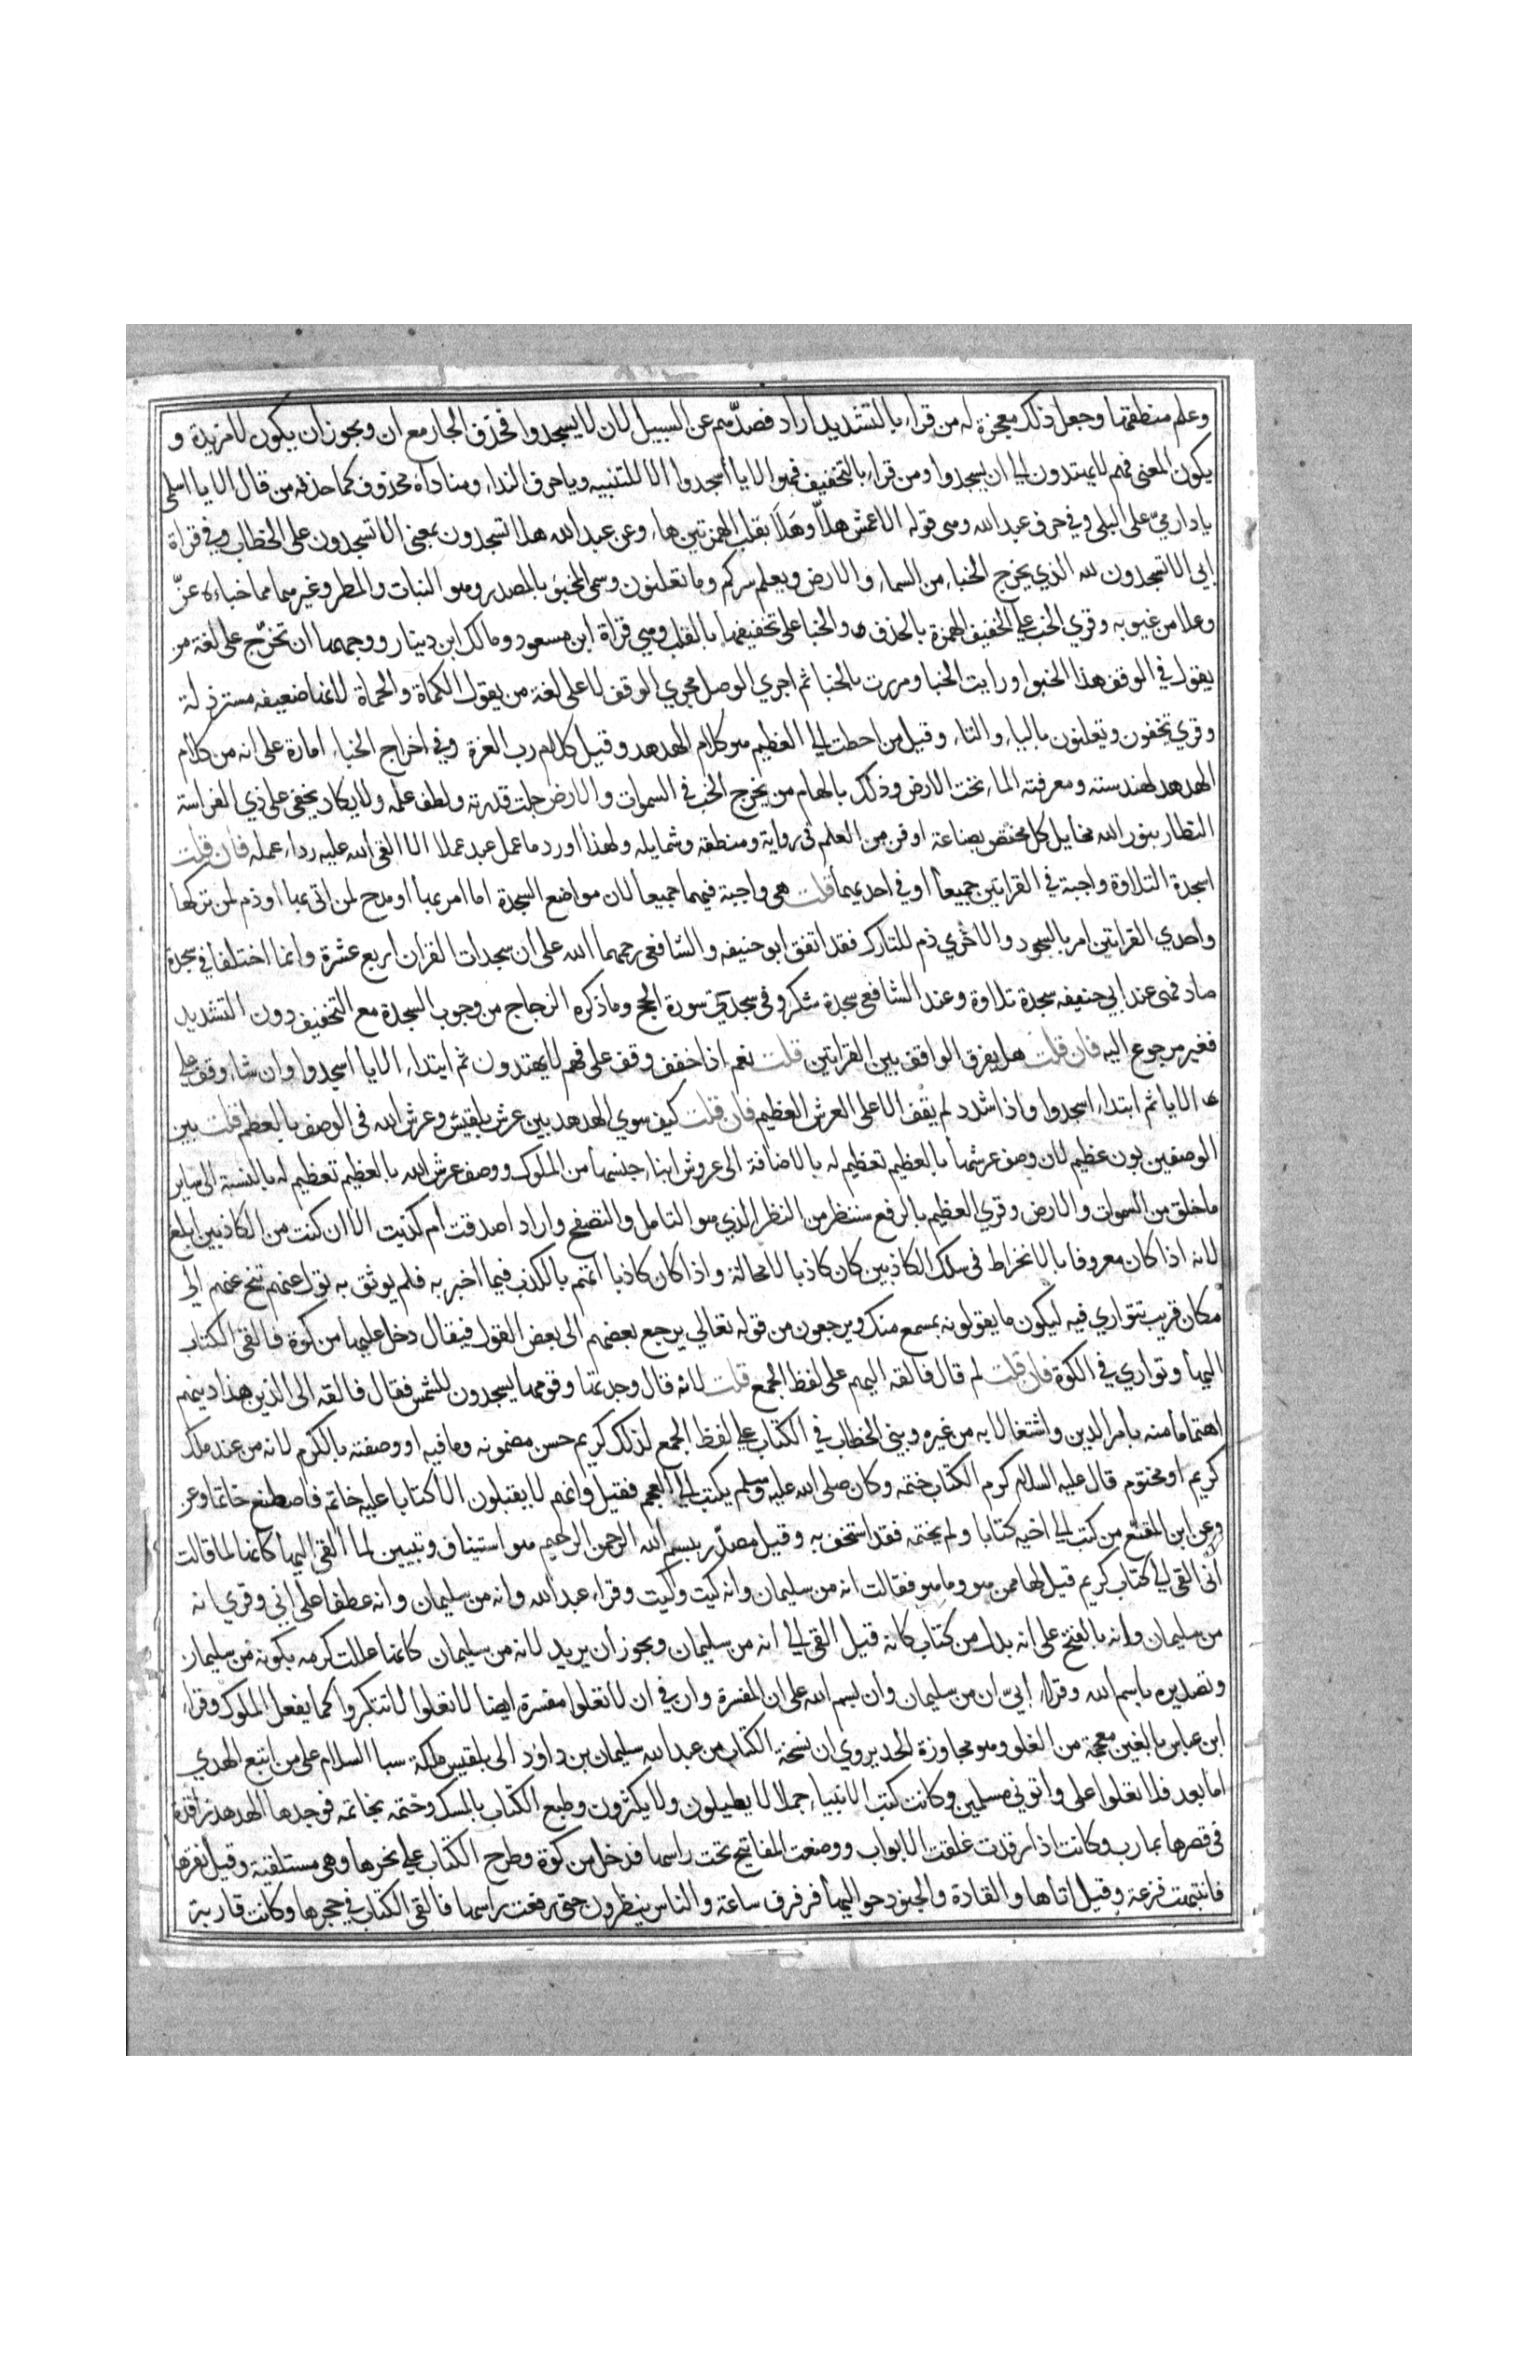 وعلم منطقتها وجعل ذلك معجزة له من قراء بالتشديد اراد فصدّهم عن السبيل لان لا يسجدوا فحذف الجار مع ان ويجوز ان يكون لا مزيدة و
يكون المعنى فهم لا يهتدون الى ان يسجدوا ومن قراء بالتخفيف فهو الا يا اسجدوا الا للتنبيه ويا حرف النداء ومناداه محذوف كما حذفه من قال الا يا اسلمي
يا دار ميّ على البلى وفي حرف عبد الله وهي قوله الاعمش هلّا وهَلَا بقلب الهمزتين هاء وعن عبد الله هلا تسجدون بمعنى الا تسجدون على الخطاب وفي قراة
ابي الا تسجدون لله الذي يخرج الخباء من السماء والارض ويعلم سركم وما تعلنون وسمي المخبئ بالمصدر وهو النبات والمطر وغيرهما مما خباءه عزّ
وعلا من غيوبه وقري الخب على تخفيف الهمزة بالحذف والخبا على تخفيفها بالقلب وهي قراة ابن مسعود ومالك ابن دينار ووجهها ان تخرّج على لغة من
يقول في الوقف هذا الخبوا ورايت الخبا ومررت بالخبا ثم اجري الوصل مجري الوقف لا على لغة من يقول الكماة والحماة لانها ضعيفه مسترذلة
وقري تخفون وتعلنون بالياء والتاء وقيل من احطت الى العظيم هو كلام الهدهد وقيل كلام رب العزة وفي اخراج الخباء امارة على انه من كلام
الهدهد لهندسته ومعرفته الماء تحت الارض وذلك بالهام من يخرج الخب في السموات والارض جلت قدرته ولطف علمه ولا يكاد يخفى على ذي الفراسة
النظار بنور الله مخايل كل مختص بصناعة او فن من العلم في روايه ومنطقه وشمايله ولهذا اورد ما عمل عبد عملا الا القى الله عليه رداء عمله فان قلت
اسجدة التلاوة واجبة في القراتين جميعا او في احديهما قلت هي واجبة فيهما جميعا لان مواضع السجدة اما امر بها او مدح لمن اتى بها او ذم لمن تركها
واحدي القراتين امر بالسجود والاخري ذم للتارك فقد اتفق ابو حنيفه والشافعى رحمهما الله على ان سجدات القران اربع عشرة وانما اختلفا في سجدة
صاد فهى عند ابي حنيفه سجدة تلاوة وعند الشافعى سجدة شكر وفى سجدتي سورة الحج وما ذكره الزجاج من وجوب السجدة مع التخفيف دون التشديد
فغير مرجوع اليه فان قلت هل يفرق الواقف بين القراتين قلت نعم اذا خفف وقف على فهم لا يهتدون ثم ابتداء الا يا اسجدوا وان شاء وقف على
الا يا ثم ابتداء اسجدوا واذا شدد لم يقف الا على العرش العظيم فان قلت كيف سوي الهدهد بين عرش بلقيس وعرش الله فى الوصف بالعظم قلت بين
الوصفين بون عظيم لان وصف عرشها بالعظيم تعظيم له بالاضافة الى عروش ابناء جنسها من الملوك ووصف عرش الله بالعظيم تعظيم له بالنسبة الى ساير
ما خلق من السموات والارض وقري العظيم بالرفع سننظر من النظر الذي هو التامل والتصفح واراد اصدقت ام كذبت الا ان كنت من الكاذبين ابلغ
لانه اذا كان معروفا بالانخراط فى سلك الكاذبين كان كاذبا لا محالة واذا كان كاذبا اتهم بالكذب فيما اخبر به فلم يوثق به تول عنهم تنح عنهم الى
مكان قريب تتواري فيه ليكون ما يقولونه بمسمع منك ويرجعون من قوله تعالي يرجع بعضهم الى بعض القول فيقال دخل عليها من كوة فالقى الكتاب
اليها وتواري في الكوة فان قلت لم قال فالقه اليهم على لفظ الجمع قلت لانه قال وجدتها وقومها يسجدون للشمس فقال فالقه الى الذين هذا دينهم
اهتماما منه بامر الدين واشتغالا به من غيره وبني الخطاب في الكتاب على لفظ الجمع لذلك كريم حسن مضمونه وما فيه او وصفته بالكرم لانه من عند ملك
كريم او مختوم قال عليه السلام كرم الكتاب ختمه وكان صلى الله عليه وسلم يكتب الى العجم فقيل وانهم لا يقبلون الا كتابا عليه خاتم فاصطنع خاتما وعن
وعن ابن المقفع من كتب الى اخيه كتابا ولم يختمه فقد استخف به وقيل مصدّر ببسم الله الرحمن الرحيم هو استيناف وتبيين لما القى اليها كانها لما قالت
انى القي الي كتاب كريم قيل لها ممن هو وما هو فقالت انه من سليمان وانه كيت وكيت وقراء عبد الله وانه من سليمان وانه عطفا على اني وقري انه
من سليمان وانه بالفتح على انه بدل من كتاب كانه قيل القى الى انه من سليمان ويجوز ان يريد لانه من سليمان كانها عللت كرمه بكونه من سليمان
وتصديره باسم الله وقراء ابيّ ان من سليمان وان بسم الله على ان المفسرة وان في ان لا تعلوا مفسرة ايضا لا تعلوا لا تتكبروا كما يفعل الملوك وقراء
ابن عباس بالغين معجمة من الغلو وهو مجاوزة الحد يروي ان نسخة الكتاب من عبد الله سليمان بن داؤد الى بلقيس ملكة سبا السلام على من اتبع الهدي
اما بعد فلا تعلوا على واتوني مسلمين وكانت كتب الانبياء جملا لا يطيلون ولا يكثرون وطبع الكتاب بالمسك وختمه بخاتمه فوجدها الهدهد راقدة
فى قصرها بمارب وكانت اذا رقدت غلقت الابواب ووضعت المفاتيح تحت راسها فدخل من كوة وطرح الكتاب على نحرها وهى مستلقية وقيل نقرها
فانتبهت فزعة وقيل اتاها والقادة والجنود حواليها فرفرف ساعة والناس ينظرون حتى رفعت راسها فالقى الكتاب في حجرها وكانت قارية